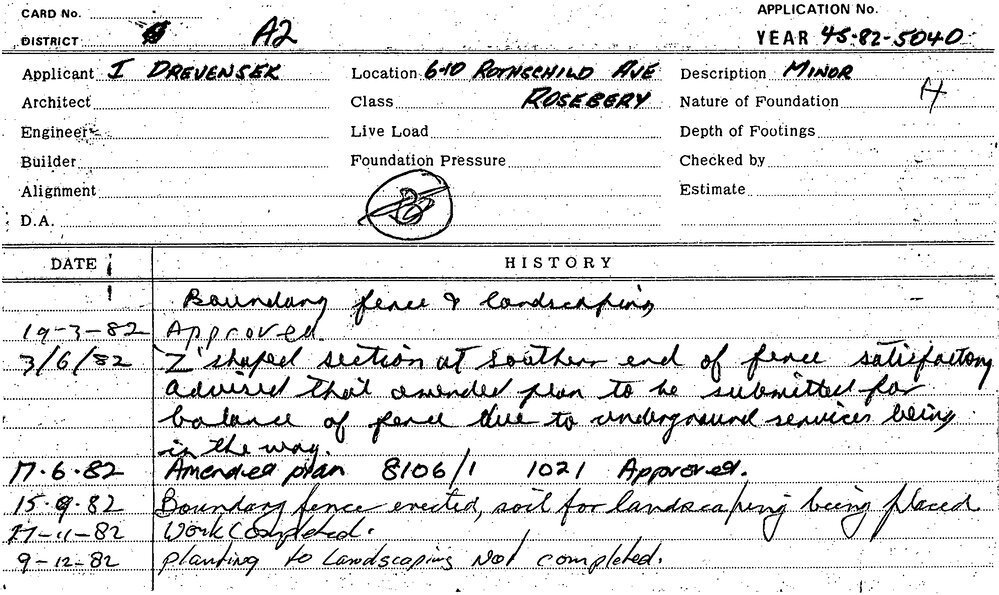 CARD No.
APPLICATION No.
DISTRICT A2
YEAR 45-82-5040
Applicant I DREVENSEK Location 6-10 ROTHSCHILD AVE Description MINOR
Architect Class ROSEBERY Nature of Foundation H
Engineer Live Load Depth of Footings
Builder Foundation Pressure Checked by
Alignment Estimate
D.A.
DATE HISTORY
Boundary fence & landscaping
19-3-82 Approved.
3/6/82 'Z' shaped section at southern end of fence satisfactory
advised that amended plan to be submitted for
balance of fence due to underground services being
in the way.
17.6.82 Amended plan 8106/1 1021 Approved.
15.9.82 Boundary fence erected, soil for landscaping being placed
17-11-82 Work Completed.
9-12-82 planting to Landscaping Not completed.